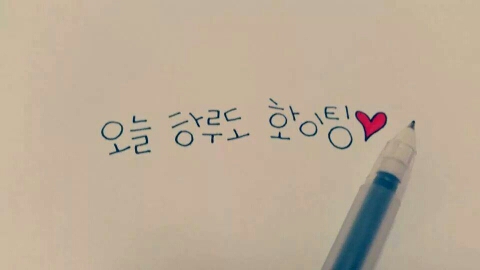 오늘 하루도 화이팅